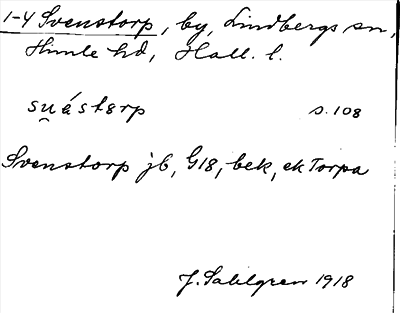 1-4 Svenstorp, by, Lindbergs sn,
Himle hd, Hall. l.
su̯ástərp s. 108
Svenstorp jb, G18, bek, ek Torpa
J. Sahlgren 1918